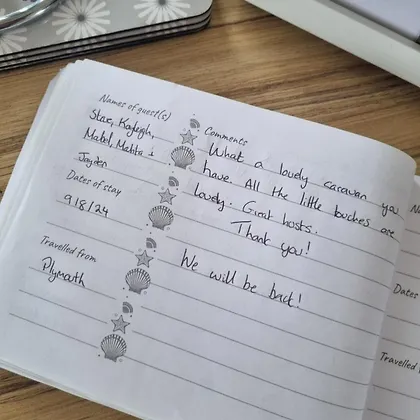 Names of guest(s)
Star, Kayleigh,
Mabel, Matilda &
Jayden
Dates of stay
9/8/24
Travelled from
Plymouth
Comments
What a lovely caravan you
have. All the little touches are
lovely. Great hosts.
Thank you!
We will be back!
Dates
Travelled